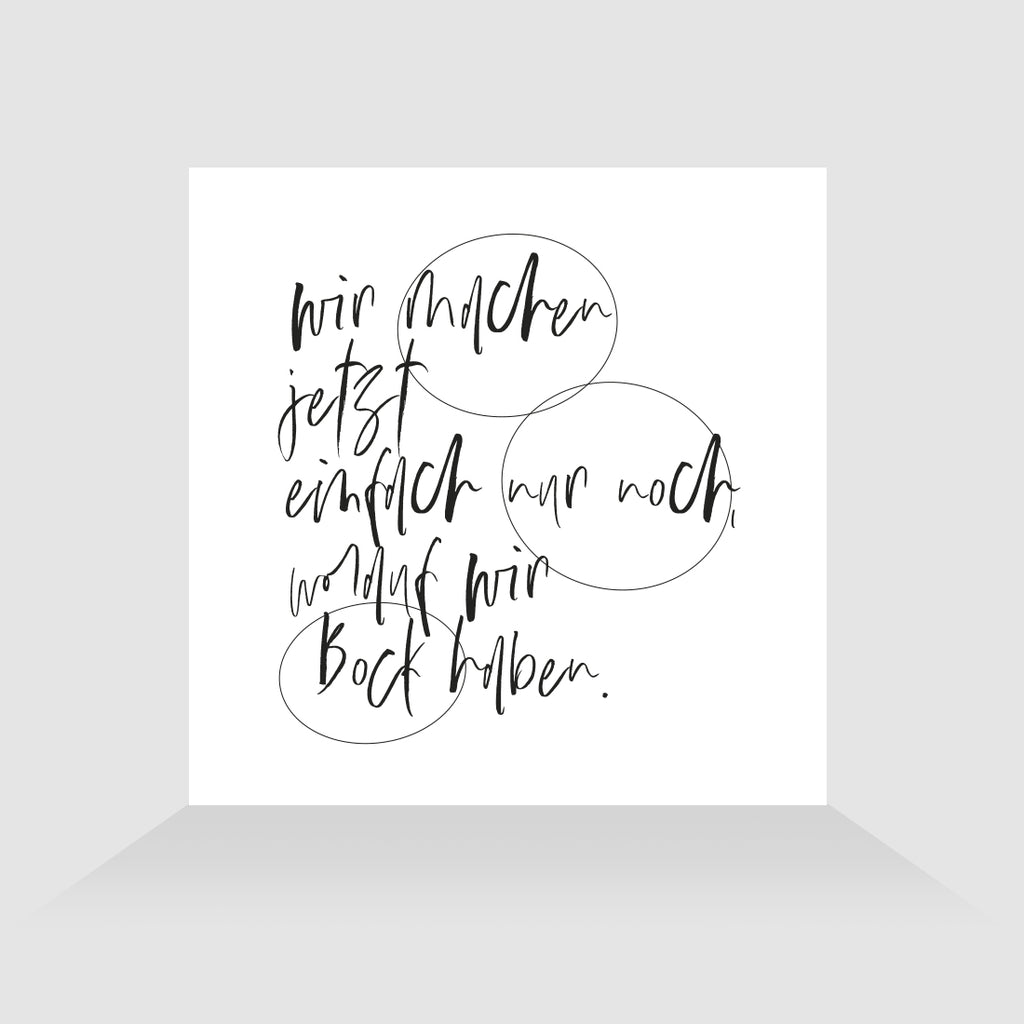 wir machen
jetzt
einfach nur noch,
worauf wir
Bock haben.